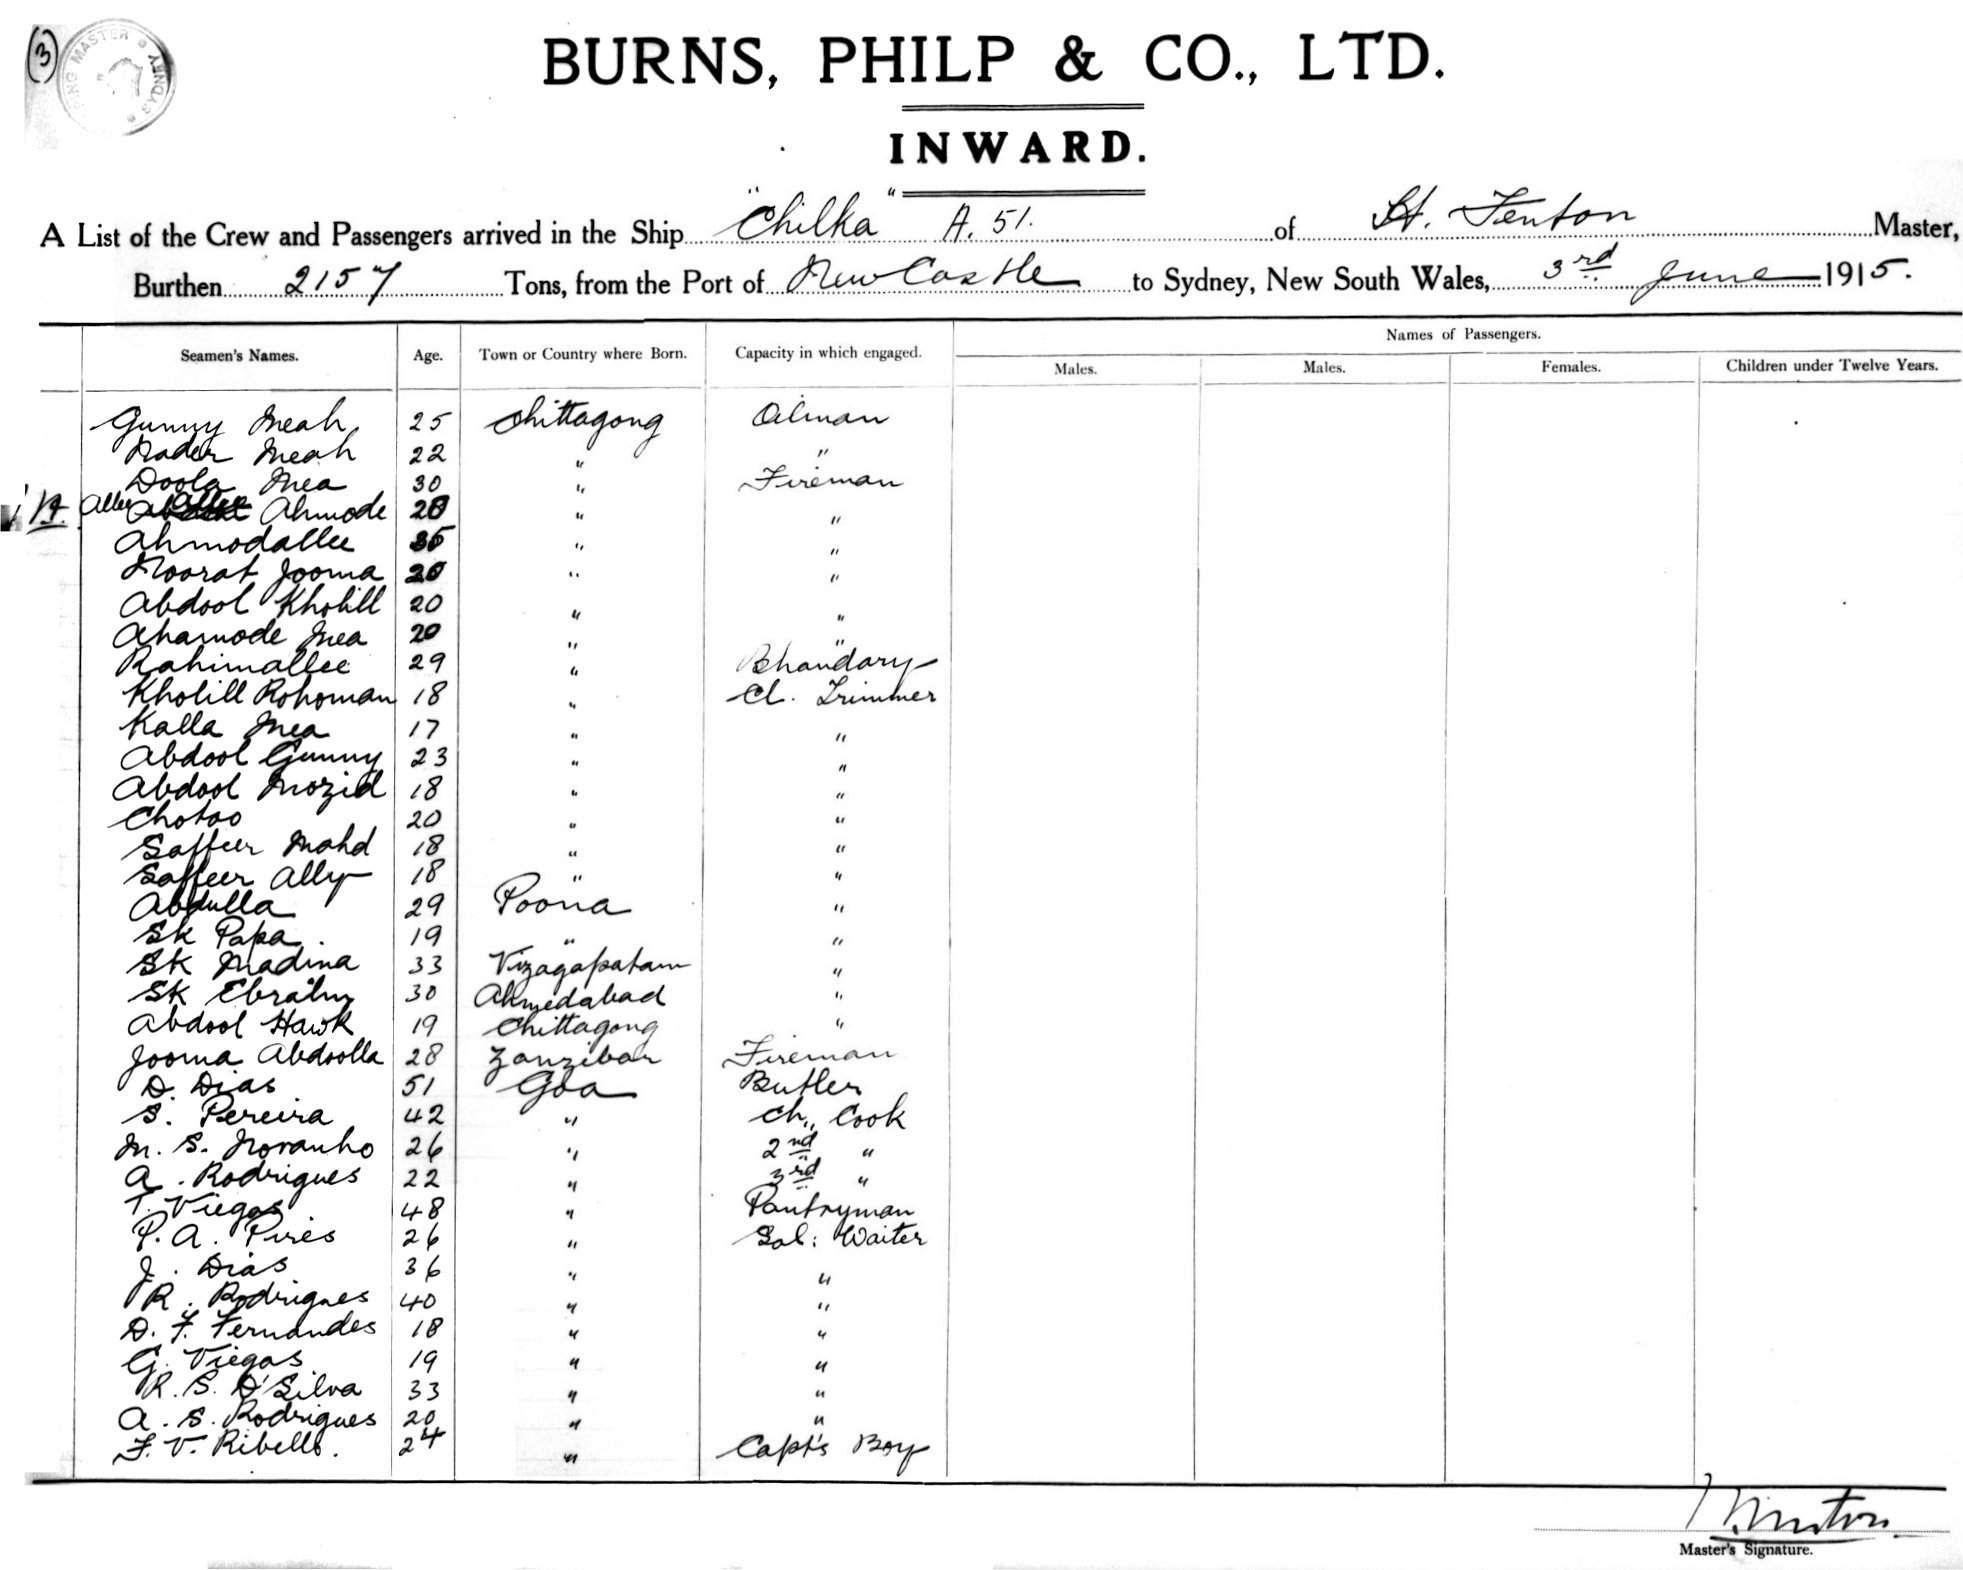 (3)
SHIPPING MASTER SYDNEY
BURNS, PHILP & CO., LTD.
INWARD.
A List of the Crew and Passengers arrived in the Ship "Chilka" A. 51. of H. Fenton Master,
Burthen 2157 Tons, from the Port of NewCastle to Sydney, New South Wales, 3rd June 1915.
Names of Passengers.
Seamen's Names. Age. Town or Country where Born. Capacity in which engaged. Males. Males. Females. Children under Twelve Years.
Gunny Meah 25 Chittagong Oilman
Nader Meah 22 " "
Doola Mea 30 " Fireman
Allee Ahmode 20 " "
Ahmodallee 35 " "
Noorat Jooma 20 " "
Abdool Kholill 20 " "
Ahamode Mea 20 " "
Rahimallee 29 " Bhandary
Kholill Rohoman 18 " Cl. Trimmer
Kalla Mea 17 " "
Abdool Gunny 23 " "
Abdool Mozid 18 " "
Chotoo 20 " "
Saffeer Mahd 18 " "
Saffeer Ally 18 " "
Abdulla 29 Poona "
Sk Papa. 19 " "
Sk Madina 33 Vizagapatam "
Sk Ebrahim 30 Ahmedabad "
Abdool Hawk 19 Chittagong "
Jooma Abdoolla 28 Zanzibar Fireman
D. Dias 51 Goa Butler
S. Pereira 42 " Ch,, Cook
M. S. Noranho 26 " 2nd "
A. Rodrigues 22 " 3rd "
T. Viegas 48 " Pantryman
P. A. Pires 26 " Sal: Waiter
J. Dias 36 " "
R. Rodrigues 40 " "
D. F. Fernandes 18 " "
G. Viegas 19 " "
R. S. D'Silva 33 " "
A. S. Rodrigues 20 " "
F. V. Ribello. 24 " Capt's Boy
Master's Signature.